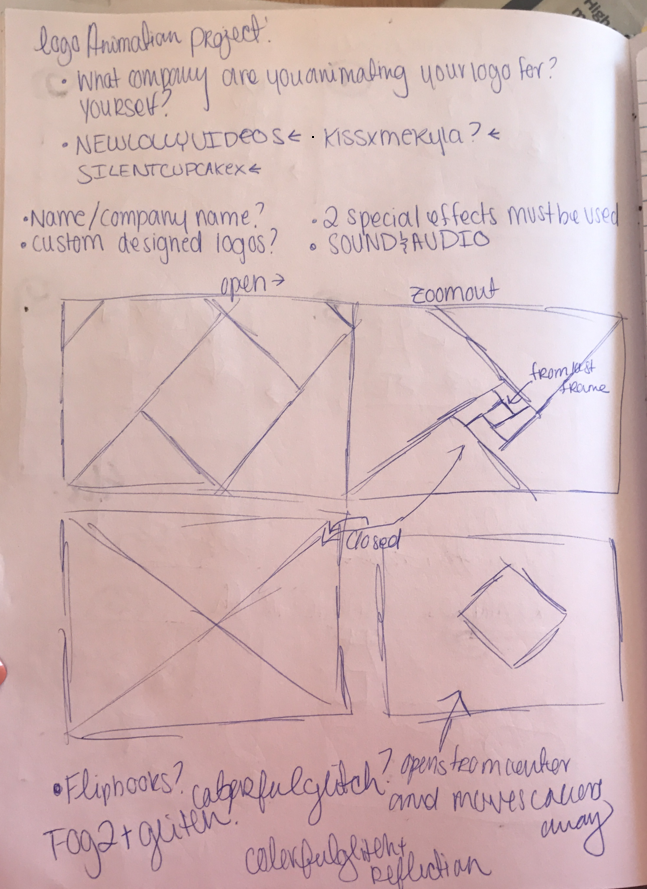 logo Animation project:
• What company are you animating your logo for?
yourself?
• NEWLOLLYVIDEOS← • KISSxmekyla?←
SILENTCUPCAKEX←
• Name/company name? • 2 special effects must be used
• custom designed logos? • SOUND & AUDIO
open→ zoomout
from last
frame
closed
• Flipbooks? colorful glitch? opens from center
and moves colors
away
Fog2 + glitch.
colorful glitch +
reflection